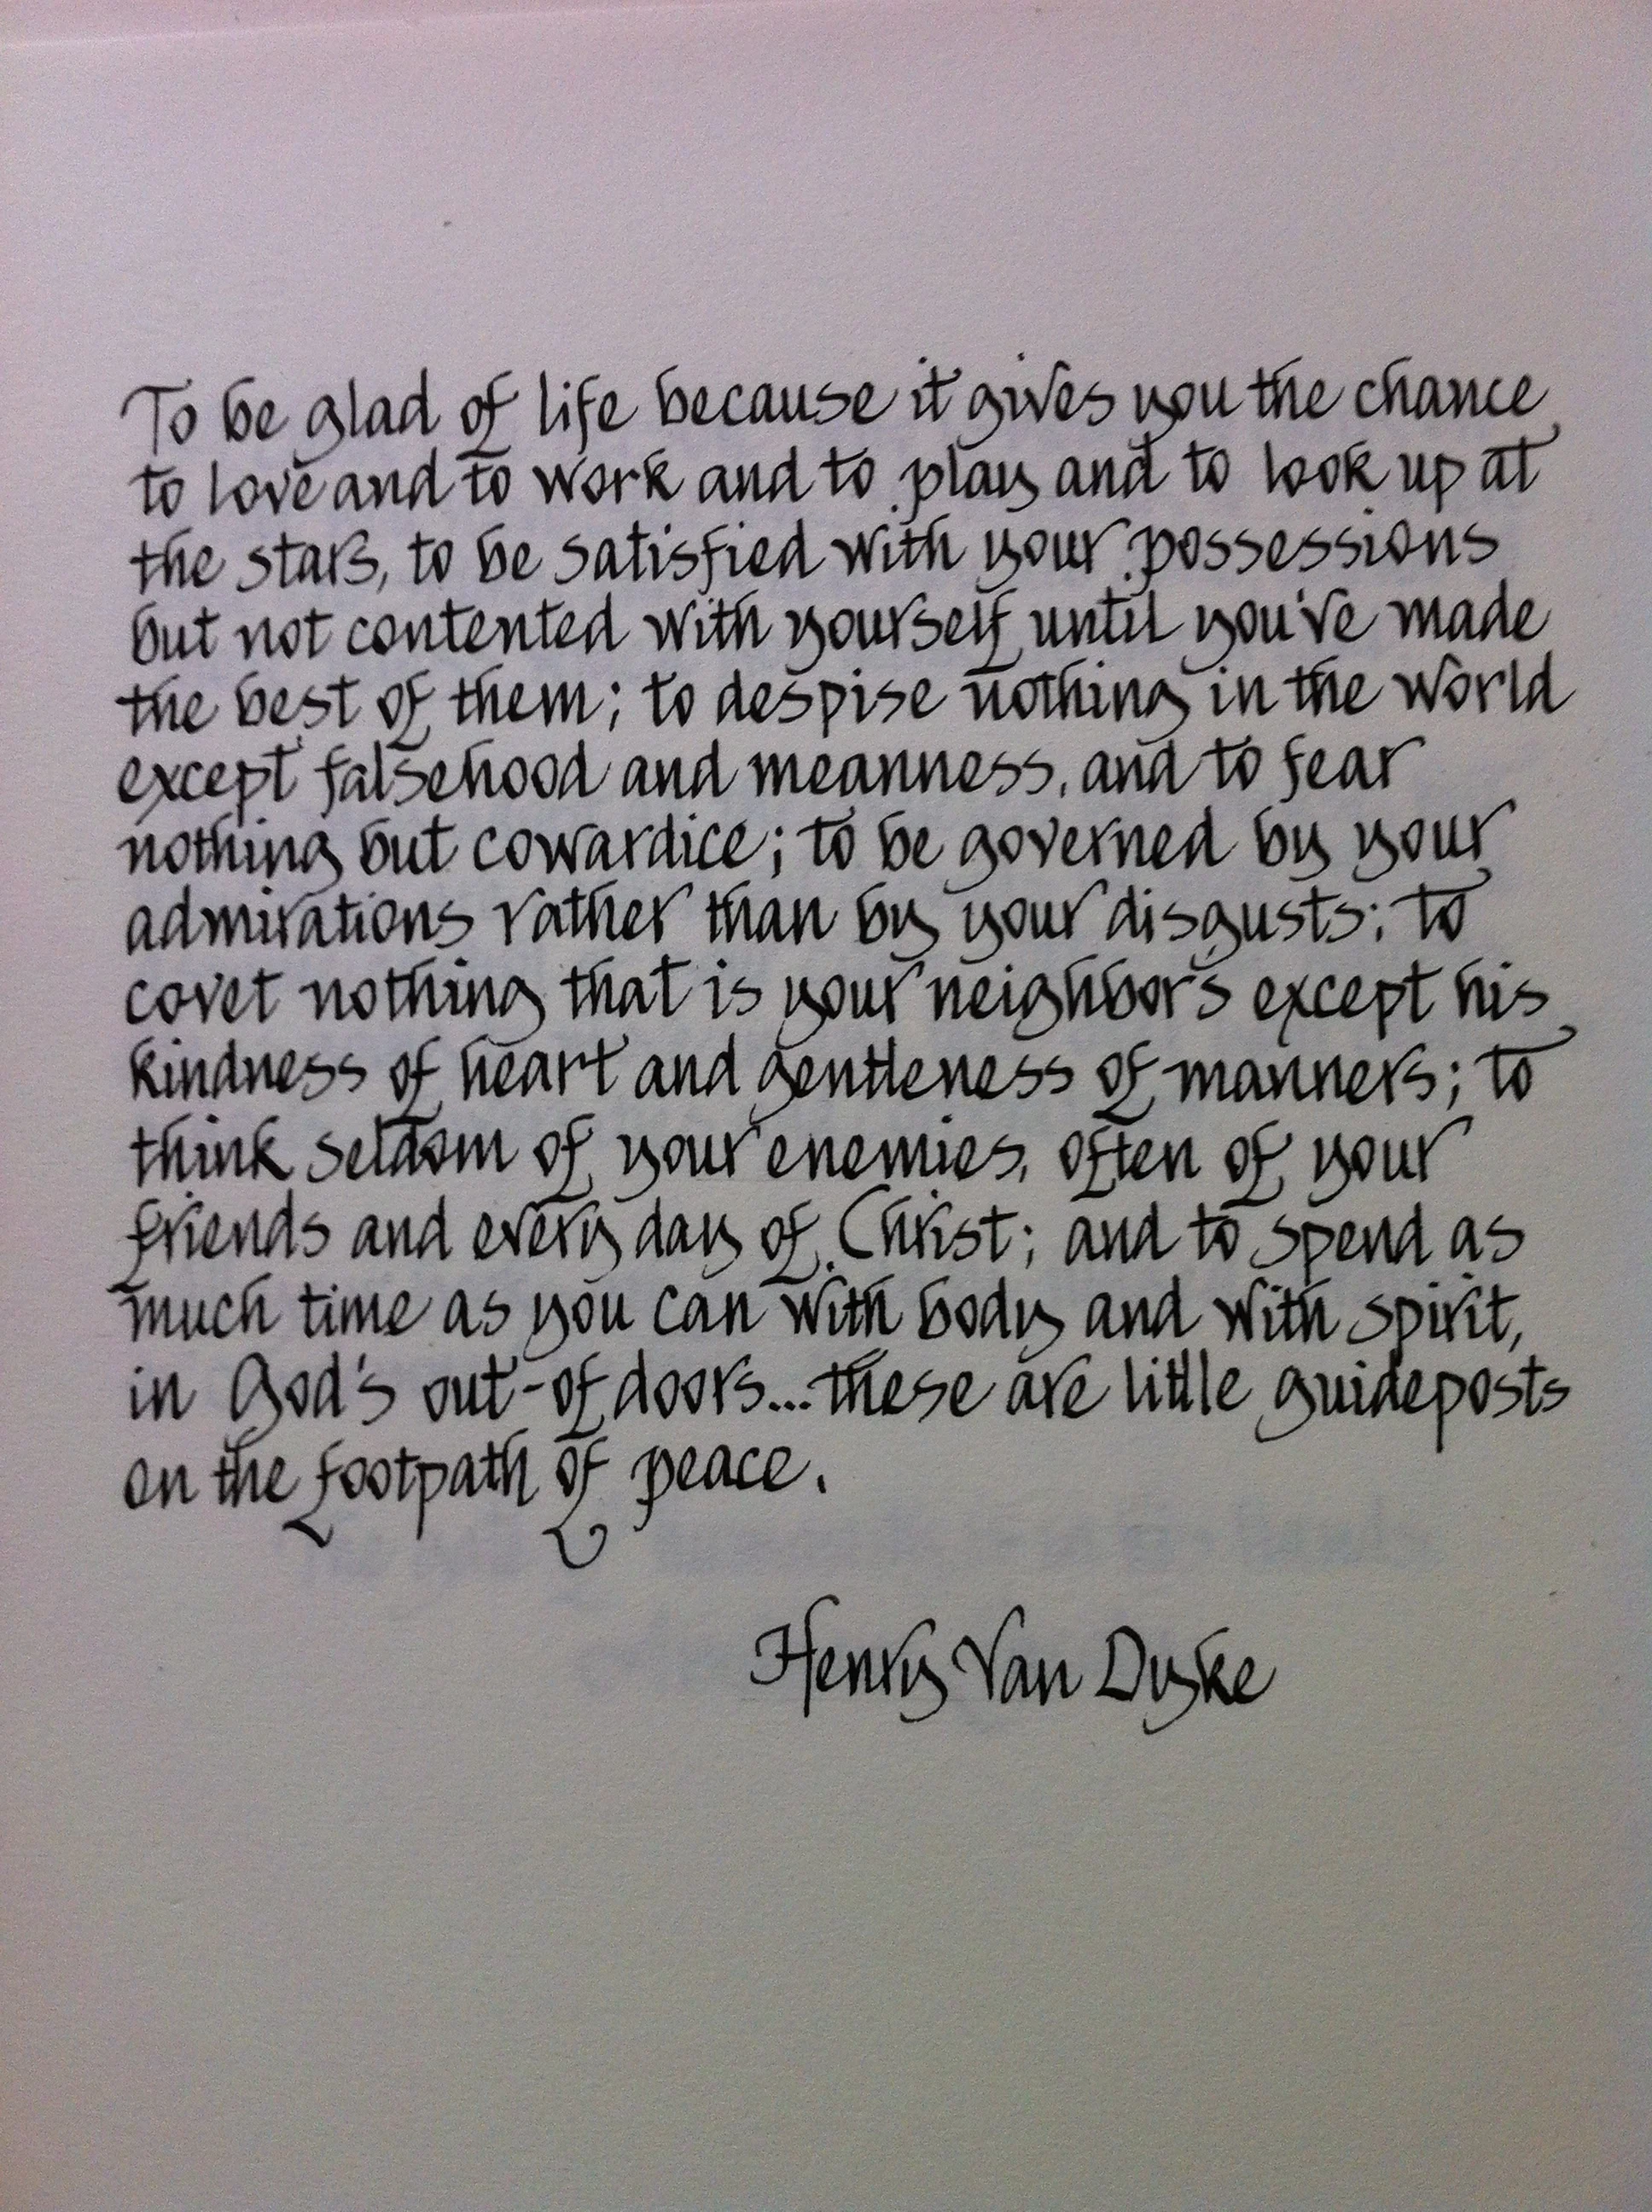 To be glad of life because it gives you the chance
to love and to work and to play and to look up at
the stars, to be satisfied with your possessions
but not contented with yourself until you've made
the best of them; to despise nothing in the world
except falsehood and meanness, and to fear
nothing but cowardice; to be governed by your
admirations rather than by your disgusts; to
covet nothing that is your neighbor's except his
kindness of heart and gentleness of manners; to
think seldom of your enemies, often of your
friends and every day of Christ; and to spend as
much time as you can with body and with spirit,
in God's out-of doors... these are little guideposts
on the footpath of peace.
Henry Van Dyke